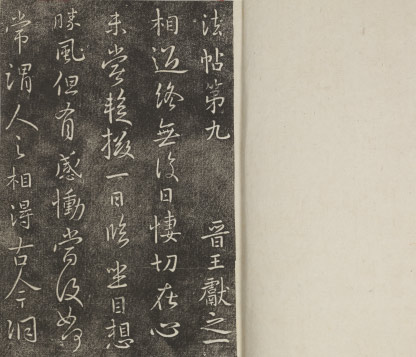 法帖第九 晉王獻之一
相過終無復日悽切在心
未嘗輟撥一日臨坐目想
勝風但有感慟當復如何
常謂人之相得古今洞